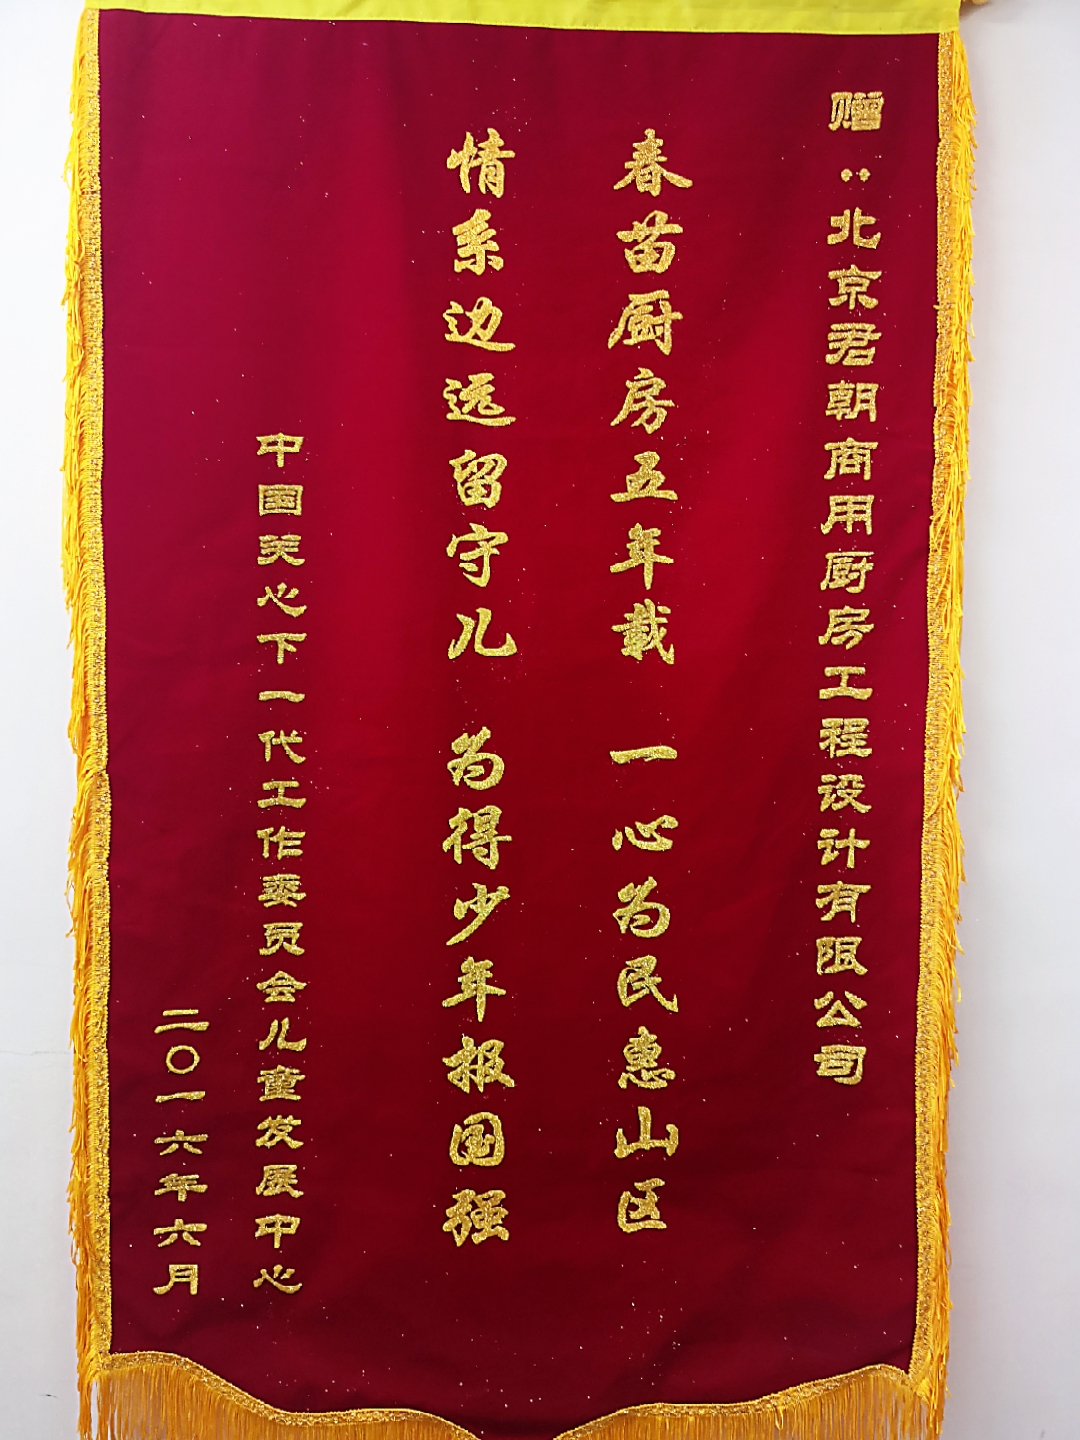 赠：北京君朝商用厨房工程设计有限公司
春苗厨房五年载 一心为民惠山区
情系边远留守儿 为得少年报国强
中国关心下一代工作委员会儿童发展中心
二〇一六年六月